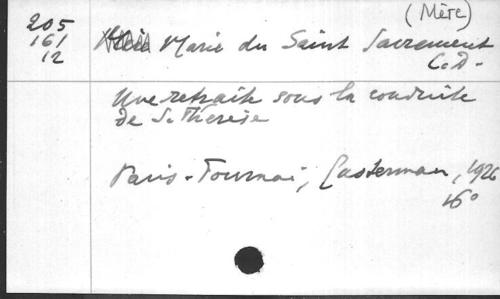 205
161
12
(Mère)
Marie du Saint Sacrement
C.D.
Une retraite sous la conduite
de S. Thérèse
Paris-Tournai, Casterman, 1926
16°